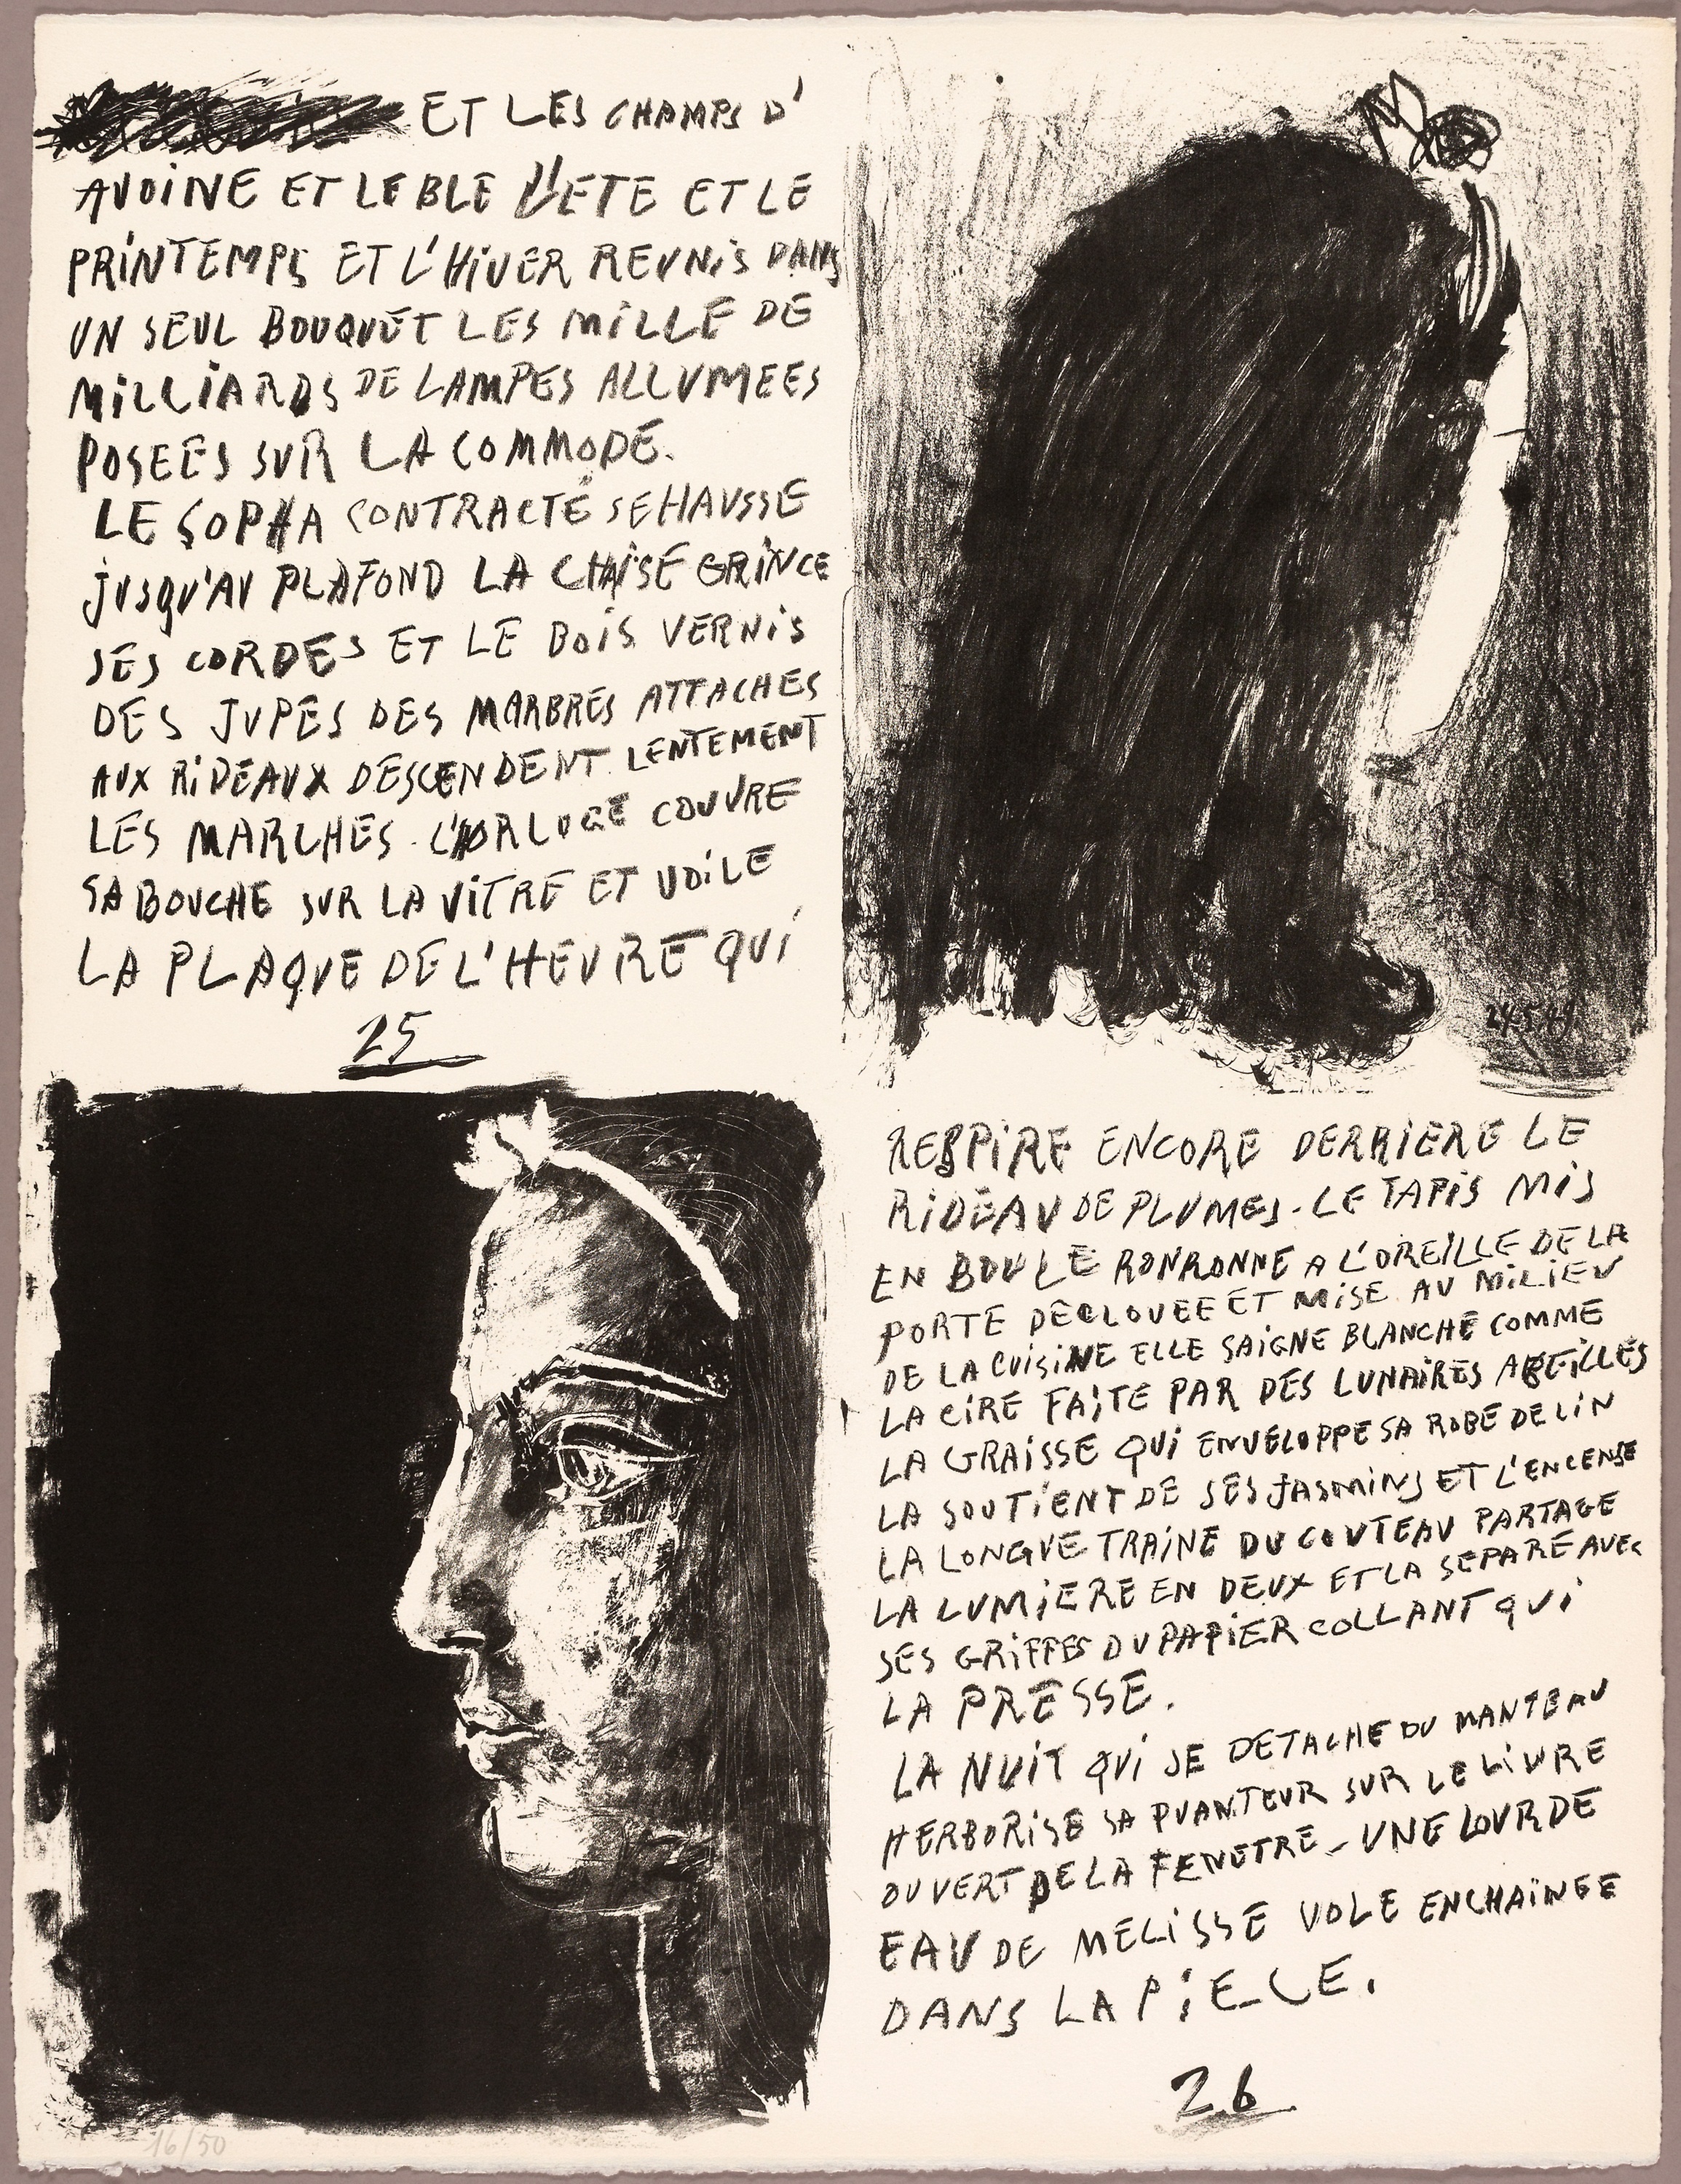 ET LES CHAMPS D'
AVOINE ET LE BLE L'ETE ET LE
PRINTEMPS ET L'HIVER REUNIS DANS
UN SEUL BOUQUET LES MILLE DE
MILLIARDS DE LAMPES ALLUMEES
POSEES SUR LA COMMODE.
LE SOPHA CONTRACTÉ SE HAUSSE
JUSQU'AU PLAFOND LA CHAISE GRINCE
SES CORDES ET LE BOIS VERNIS
DES JUPES DES MARBRES ATTACHES
AUX RIDEAUX DESCENDENT LENTEMENT
LES MARCHES. L'HORLOGE COUVRE
SA BOUCHE SUR LA VITRE ET VOILE
LA PLAQUE DE L'HEURE QUI
25
24.5.49.
RESPIRE ENCORE DERRIERE LE
RIDEAU DE PLUMES. LE TAPIS MIS
EN BOULE RONRONNE A L'OREILLE DE LA
PORTE DECLOUEE ET MISE AU MILIEU
DE LA CUISINE ELLE SAIGNE BLANCHE COMME
LA CIRE FAITE PAR DES LUNAIRES ABEILLES
LA GRAISSE QUI ENVELOPPE SA ROBE DE LIN
LA SOUTIENT DE SES JASMINS ET L'ENCENSE
LA LONGUE TRAINE DU COUTEAU PARTAGE
LA LUMIERE EN DEUX ET LA SEPARE AVEC
SES GRIFFES DU PAPIER COLLANT QUI
LA PRESSE.
LA NUIT QUI SE DETACHE DU MANTEAU
HERBORISE SA PUANTEUR SUR LE LIVRE
OUVERT DE LA FENETRE - UNE LOURDE
EAU DE MELISSE VOLE ENCHAINEE
DANS LA PIECE.
26
16/50